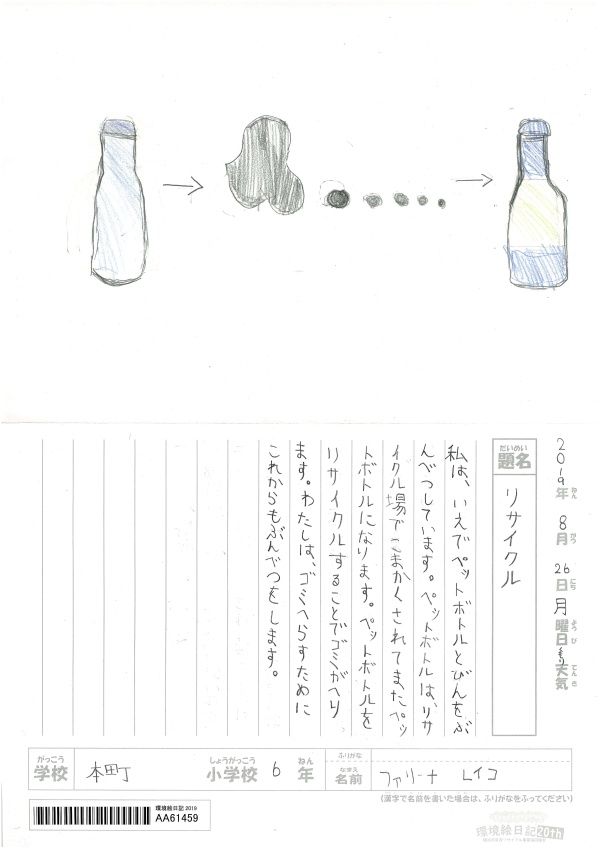 2019年 8月 26日 月曜日 天気
ねん がつ にち ようび てんき
だいめい
題名
リサイクル
私は、いえでペットボトルとびんをぶ
んべつしています。ペットボトルは、リサ
イクル場でこまかくされてまたペッ
トボトルになります。ペットボトルを
リサイクルすることでゴミがへり
ます。わたしは、ゴミへらすために
これからもぶんべつをします。
がっこう しょうがっこう ねん ふりがな
学校 本町 小学校 6 年 なまえ 名前 ファリーナ レイコ
(漢字で名前を書いた場合は、ふりがなをふってください)
環境絵日記 2019
AA61459
環境絵日記20th